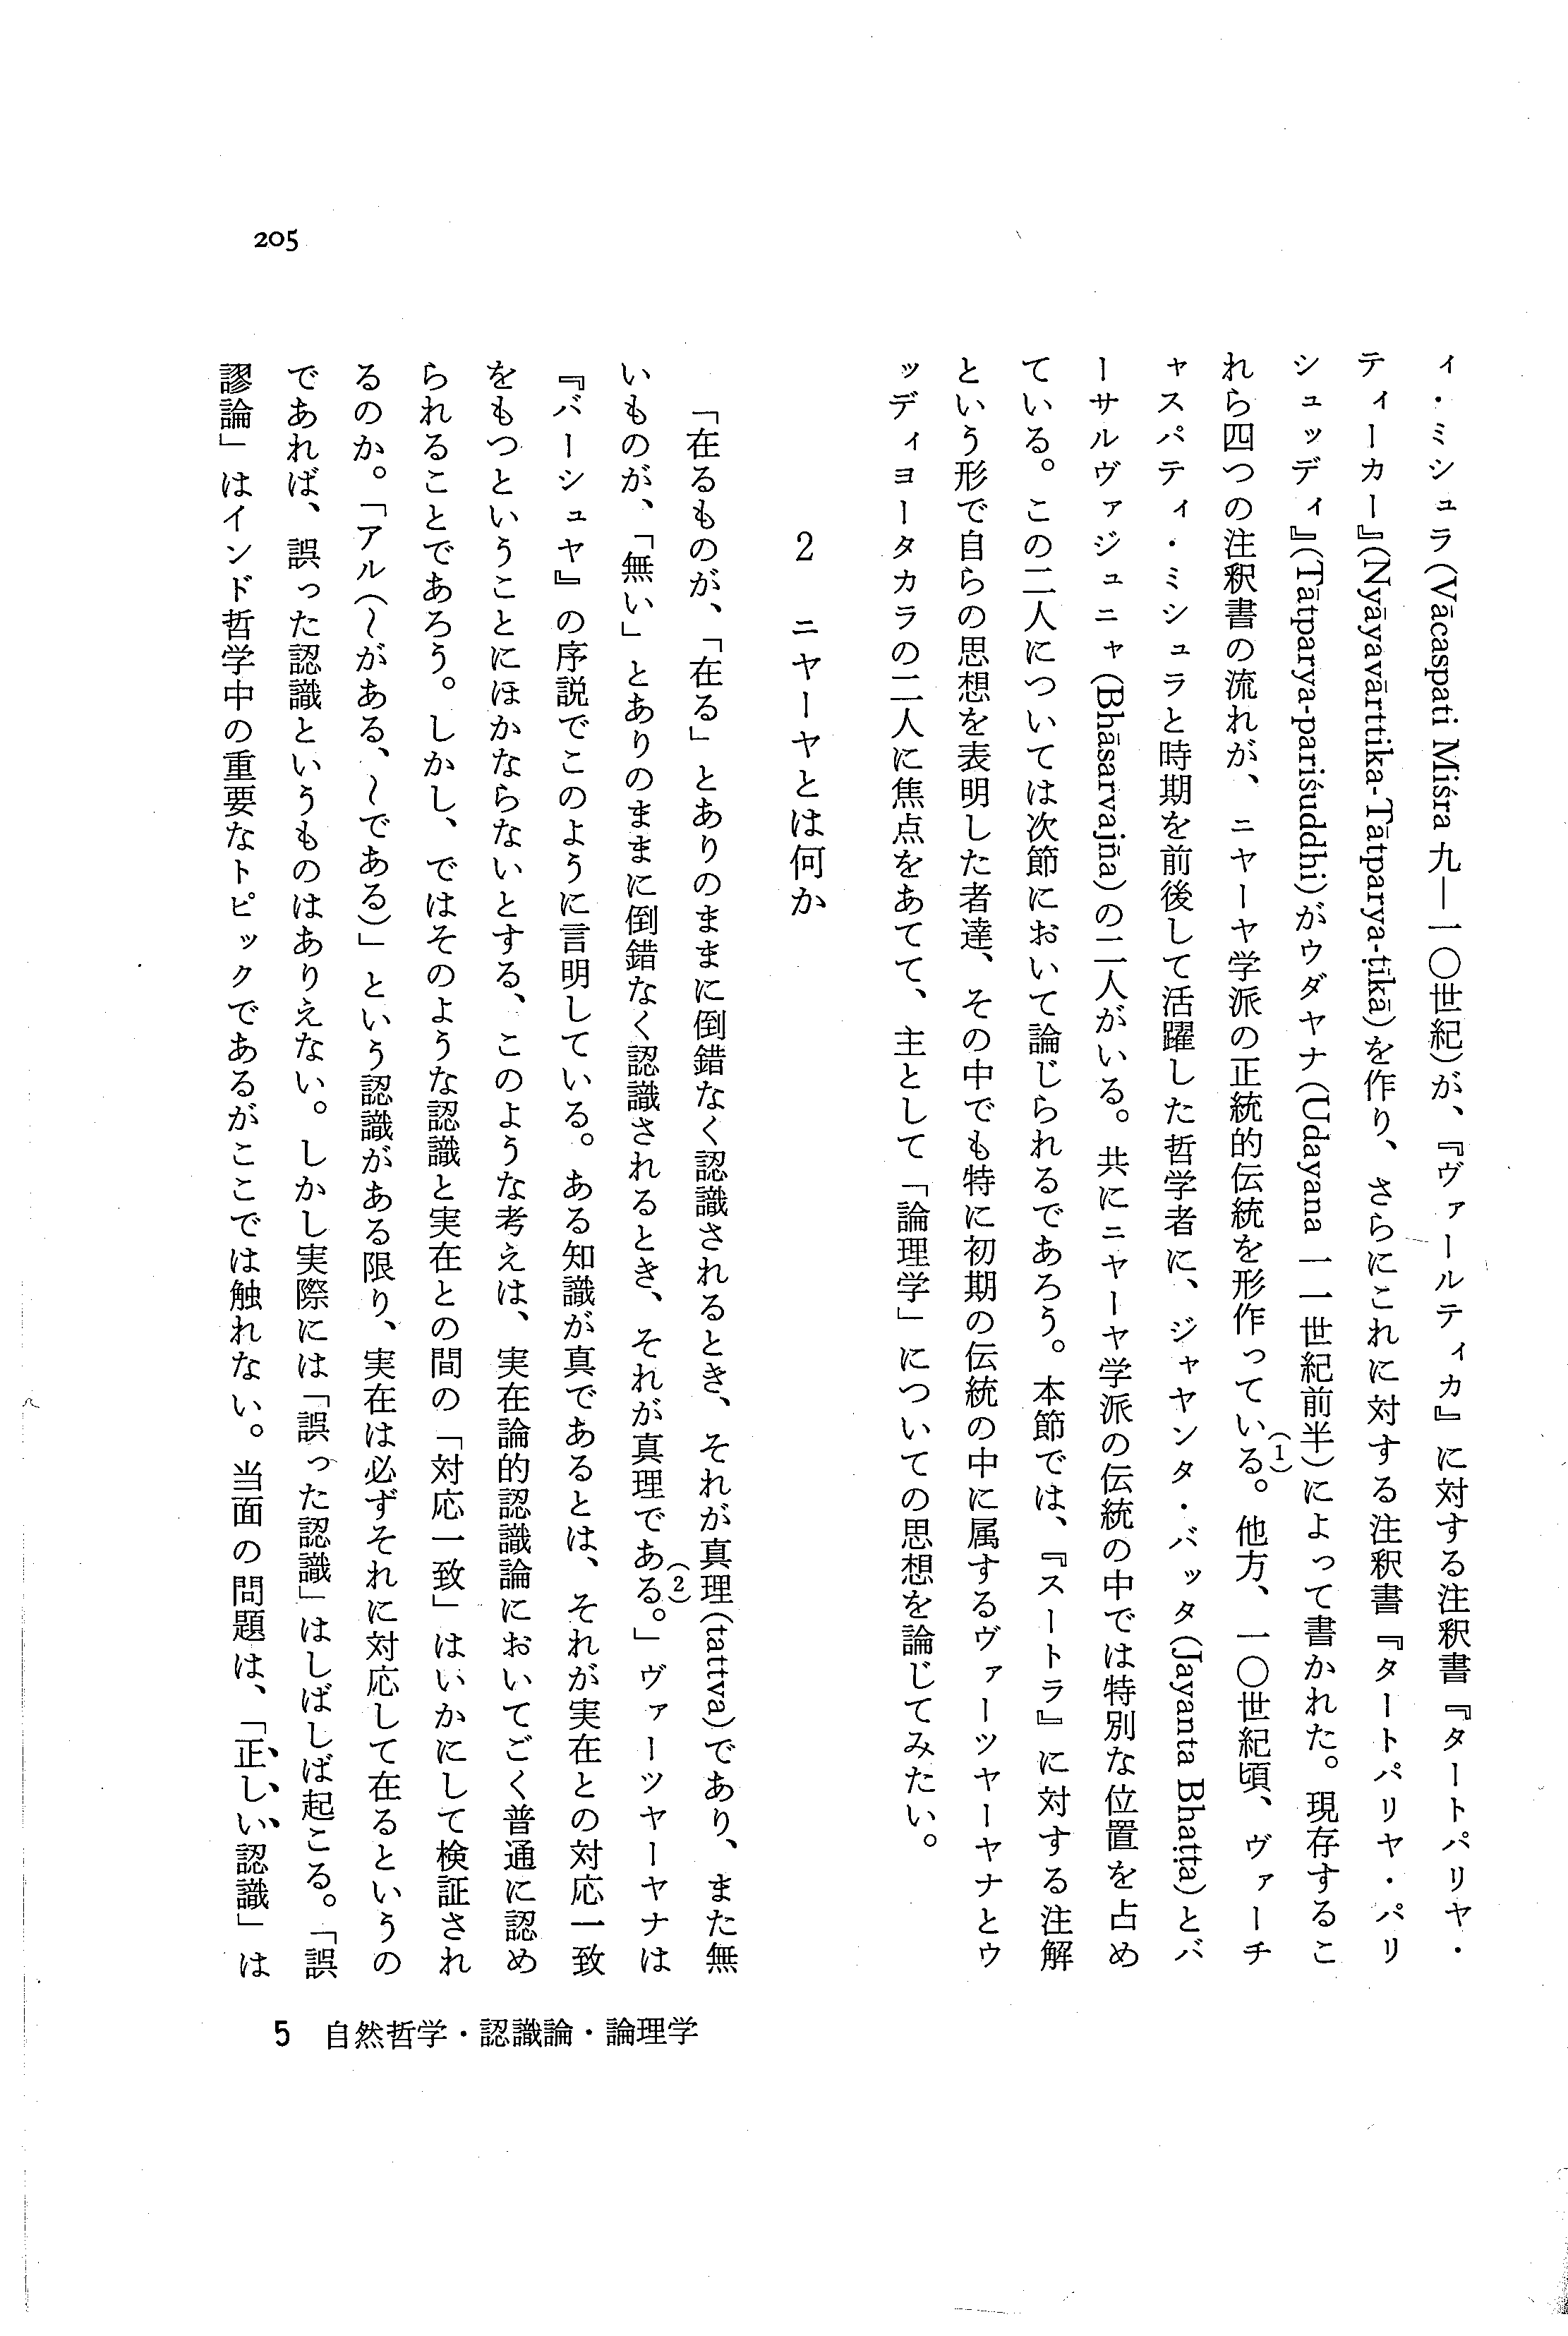 ィ・ミシュラ(Vācaspati Miśra 九―一〇世紀)が、『ヴァールティカ』に対する注釈書『タートパリヤ・
ティーカー』(Nyāyavārttika-Tātparya-ṭikā)を作り、さらにこれに対する注釈書『タートパリヤ・パリ
シュッディ』(Tātparya-pariśuddhi)がウダヤナ(Udayana 一一世紀前半)によって書かれた。現存するこ
れら四つの注釈書の流れが、ニヤーヤ学派の正統的伝統を形作っている。(1)他方、一〇世紀頃、ヴァーチ
ャスパティ・ミシュラと時期を前後して活躍した哲学者に、ジャヤンタ・バッタ(Jayanta Bhaṭṭa)とバ
ーサルヴァジュニャ(Bhāsarvajña)の二人がいる。共にニヤーヤ学派の伝統の中では特別な位置を占め
ている。この二人については次節において論じられるであろう。本節では、『スートラ』に対する注解
という形で自らの思想を表明した者達、その中でも特に初期の伝統の中に属するヴァーツヤーヤナとウ
ッディヨータカラの二人に焦点をあてて、主として「論理学」についての思想を論じてみたい。
2 ニヤーヤとは何か
「在るものが、「在る」とありのままに倒錯なく認識されるとき、それが真理(tattva)であり、また無
いものが、「無い」とありのままに倒錯なく認識されるとき、それが真理である。(2)」ヴァーツヤーヤナは
『バーシュヤ』の序説でこのように言明している。ある知識が真であるとは、それが実在との対応一致
をもつということにほかならないとする、このような考えは、実在論的認識論においてごく普通に認め
られることであろう。しかし、ではそのような認識と実在との間の「対応一致」はいかにして検証され
るのか。「アル(〜がある、〜である)」という認識がある限り、実在は必ずそれに対応して在るというの
であれば、誤った認識というものはありえない。しかし実際には「誤った認識」はしばしば起こる。「誤
謬論」はインド哲学中の重要なトピックであるがここでは触れない。当面の問題は、「正しい認識」は
205
5 自然哲学・認識論・論理学